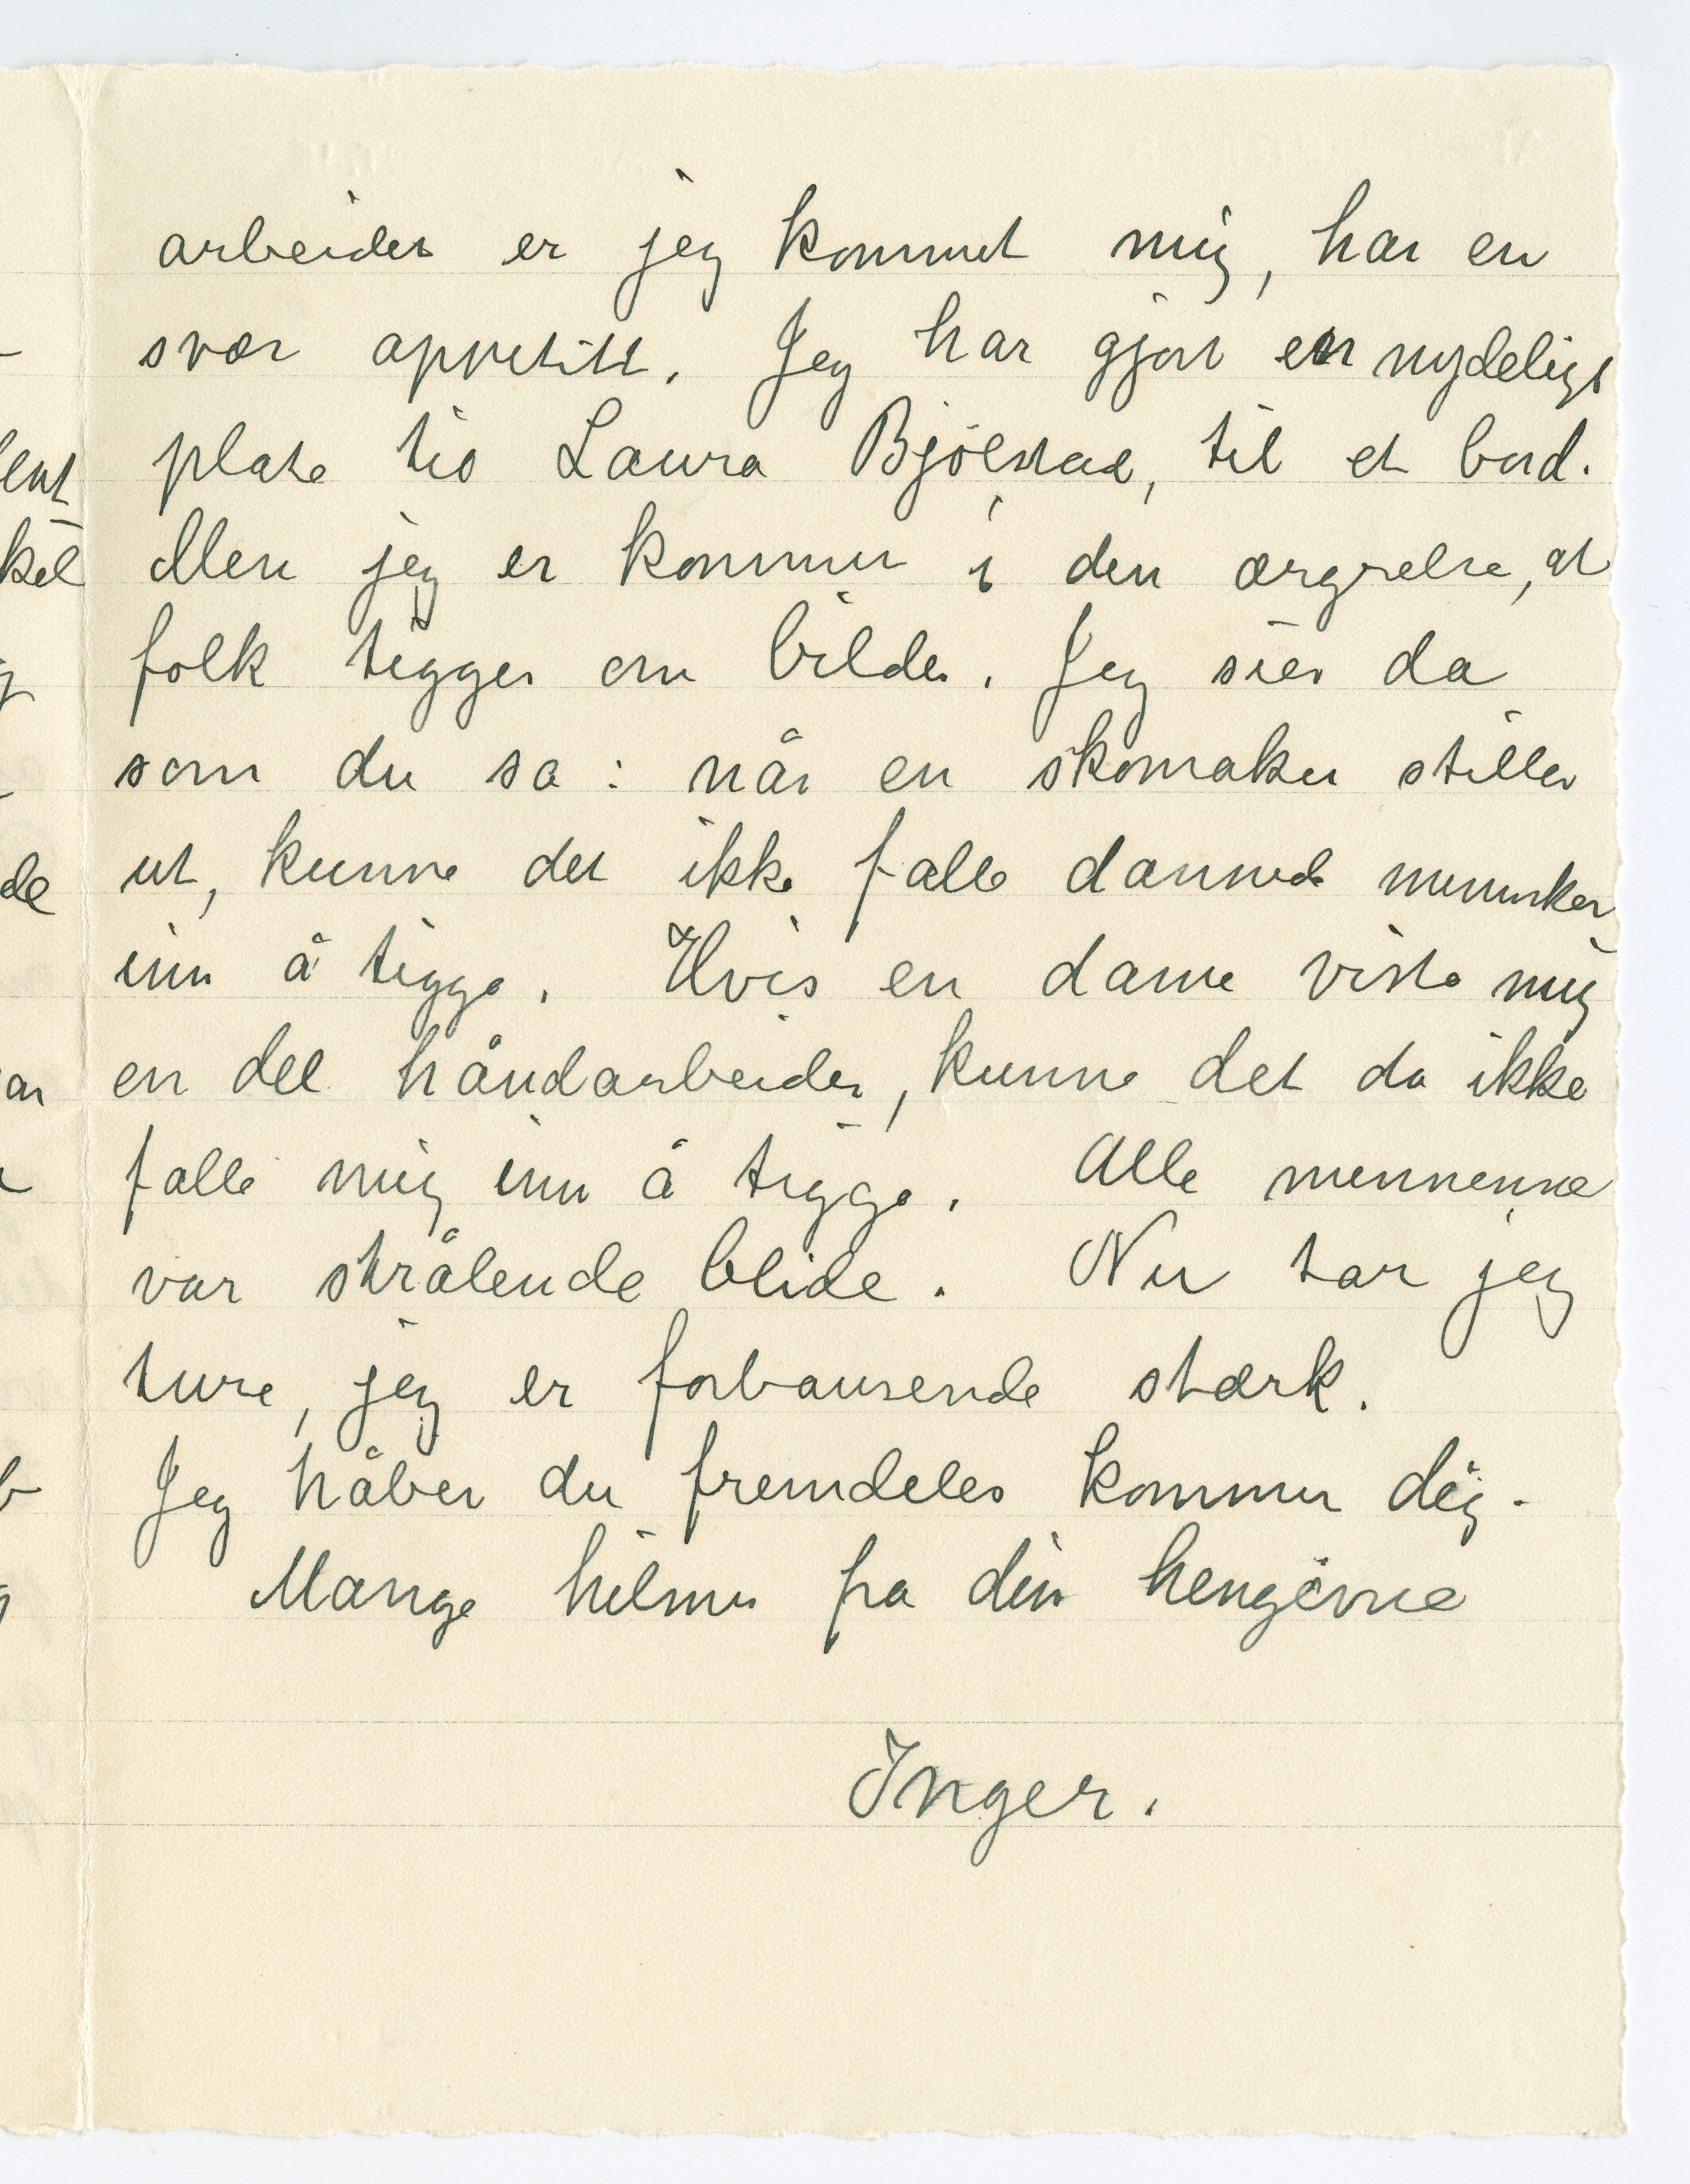 arbeidet er jeg kommet mig, har en
svær appetitt. Jeg har gjort en nydelig
plate tio Laura Bjölstad, til et bord.
Men jeg er kommer i den ærgrelse, at
folk tigger om bilder. Jeg sier da
som du sa: når en skomaker stiller
ut, kunne det ikke falle dannede mennesker
inn å tigge. Hvis en dame viste mig
en del håndarbeider, kunne det da ikke
falle mig inn å tigge. Alle mennene
var strålende blide. Nu tar jeg
ture, jeg er forbausende stærk.
Jeg håber du fremdeles kommer dig.
Mange hilsner fra din hengivne
Inger.